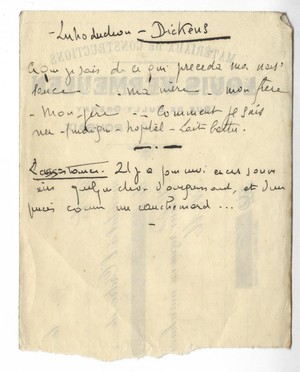 - Introduction - Dickens
Ce que je sais de ce qui précéda ma nais-
sance - ma mère - mon frère
- Mon père - - Comment je suis
né - hôpital - Lait battu.
Il y a pour moi encore
quelque chose d'angoissant, et d'un
peu comme un cauchemard ...
MATÉRIAUX DE CONSTRUCTIONS
LOUIS